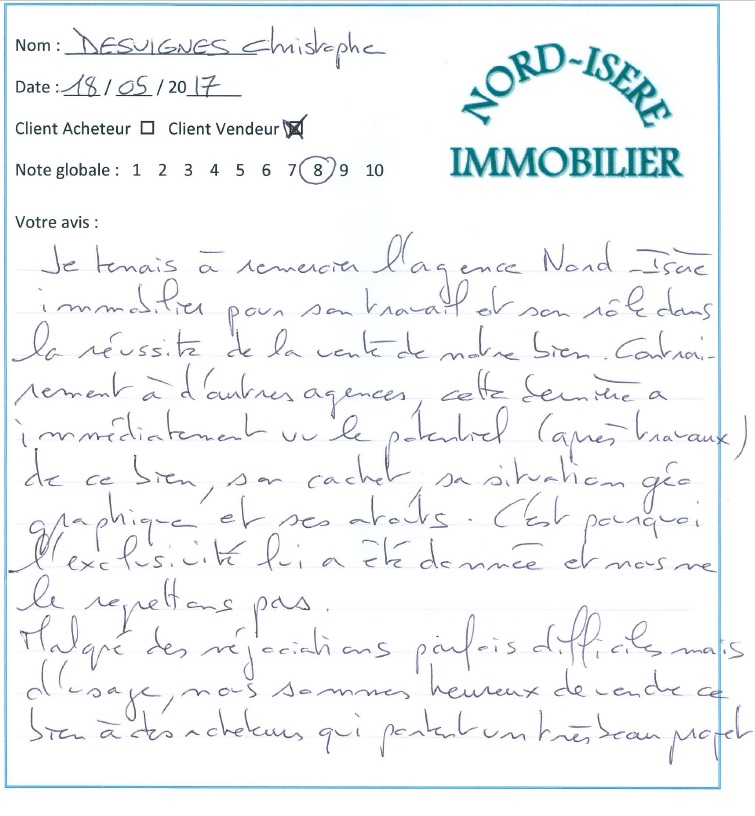 Nom : DESVIGNES Christophe
Date : 18 / 05 / 2017
Client Acheteur ☐ Client Vendeur ☒
Note globale : 1 2 3 4 5 6 7 8 9 10
NORD-ISERE
IMMOBILIER
Votre avis :
Je tenais à remercier l'agence Nord-Isère
immobilier pour son travail et son rôle dans
la réussite de la vente de notre bien. Contrai-
rement à d'autres agences, cette dernière a
immédiatement vu le potentiel (après travaux)
de ce bien, son cachet, sa situation géo
graphique et ses atouts. C'est pourquoi
l'exclusivité lui a été donnée et nous ne
le regrettons pas.
Malgré des négociations parfois difficiles mais
d'usage, nous sommes heureux de vendre ce
bien à des acheteurs qui portent un très beau projet